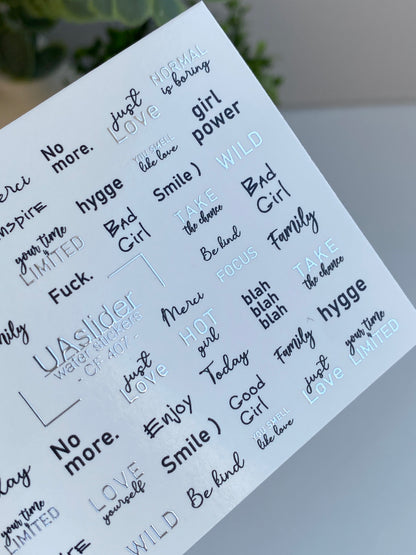 NORMAL
is boring
just
LOVE
girl
power
No
more.
YOU SMELL
like love
WILD
Merci
hygge
Smile )
Bad
Girl
INSPIRE
Bad
Girl
TAKE
the chance
Family
your time
is LIMITED
Be kind
FOCUS
TAKE
the chance
Fuck.
UAslider
water stickers
- CF 407 -
Merci
blah
blah
blah
hygge
Family
HOT
girl
Family
your time
is LIMITED
just
LOVE
Today
just
LOVE
Enjoy
Good
Girl
YOU SMELL
like love
No
more.
Smile )
Today
LOVE
yourself
Be kind
your time
is LIMITED
WILD
INSPIRE